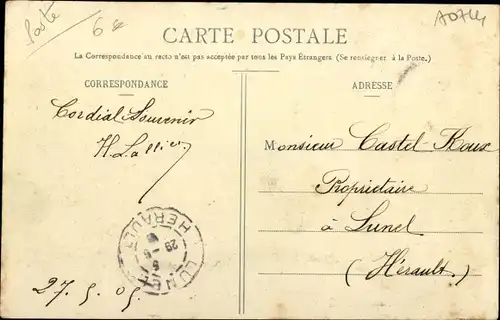 Poste
6
A0744
CARTE POSTALE
La Correspondance au recto n'est pas acceptée par tous les Pays Étrangers (Se renseigner à la Poste.)
CORRESPONDANCE
ADRESSE
Cordial Souvenir
H. Lallier
Monsieur Castel-Roux
Propriétaire
à Lunel
(Hérault)
LUNEL
HERAULT
27.5.05